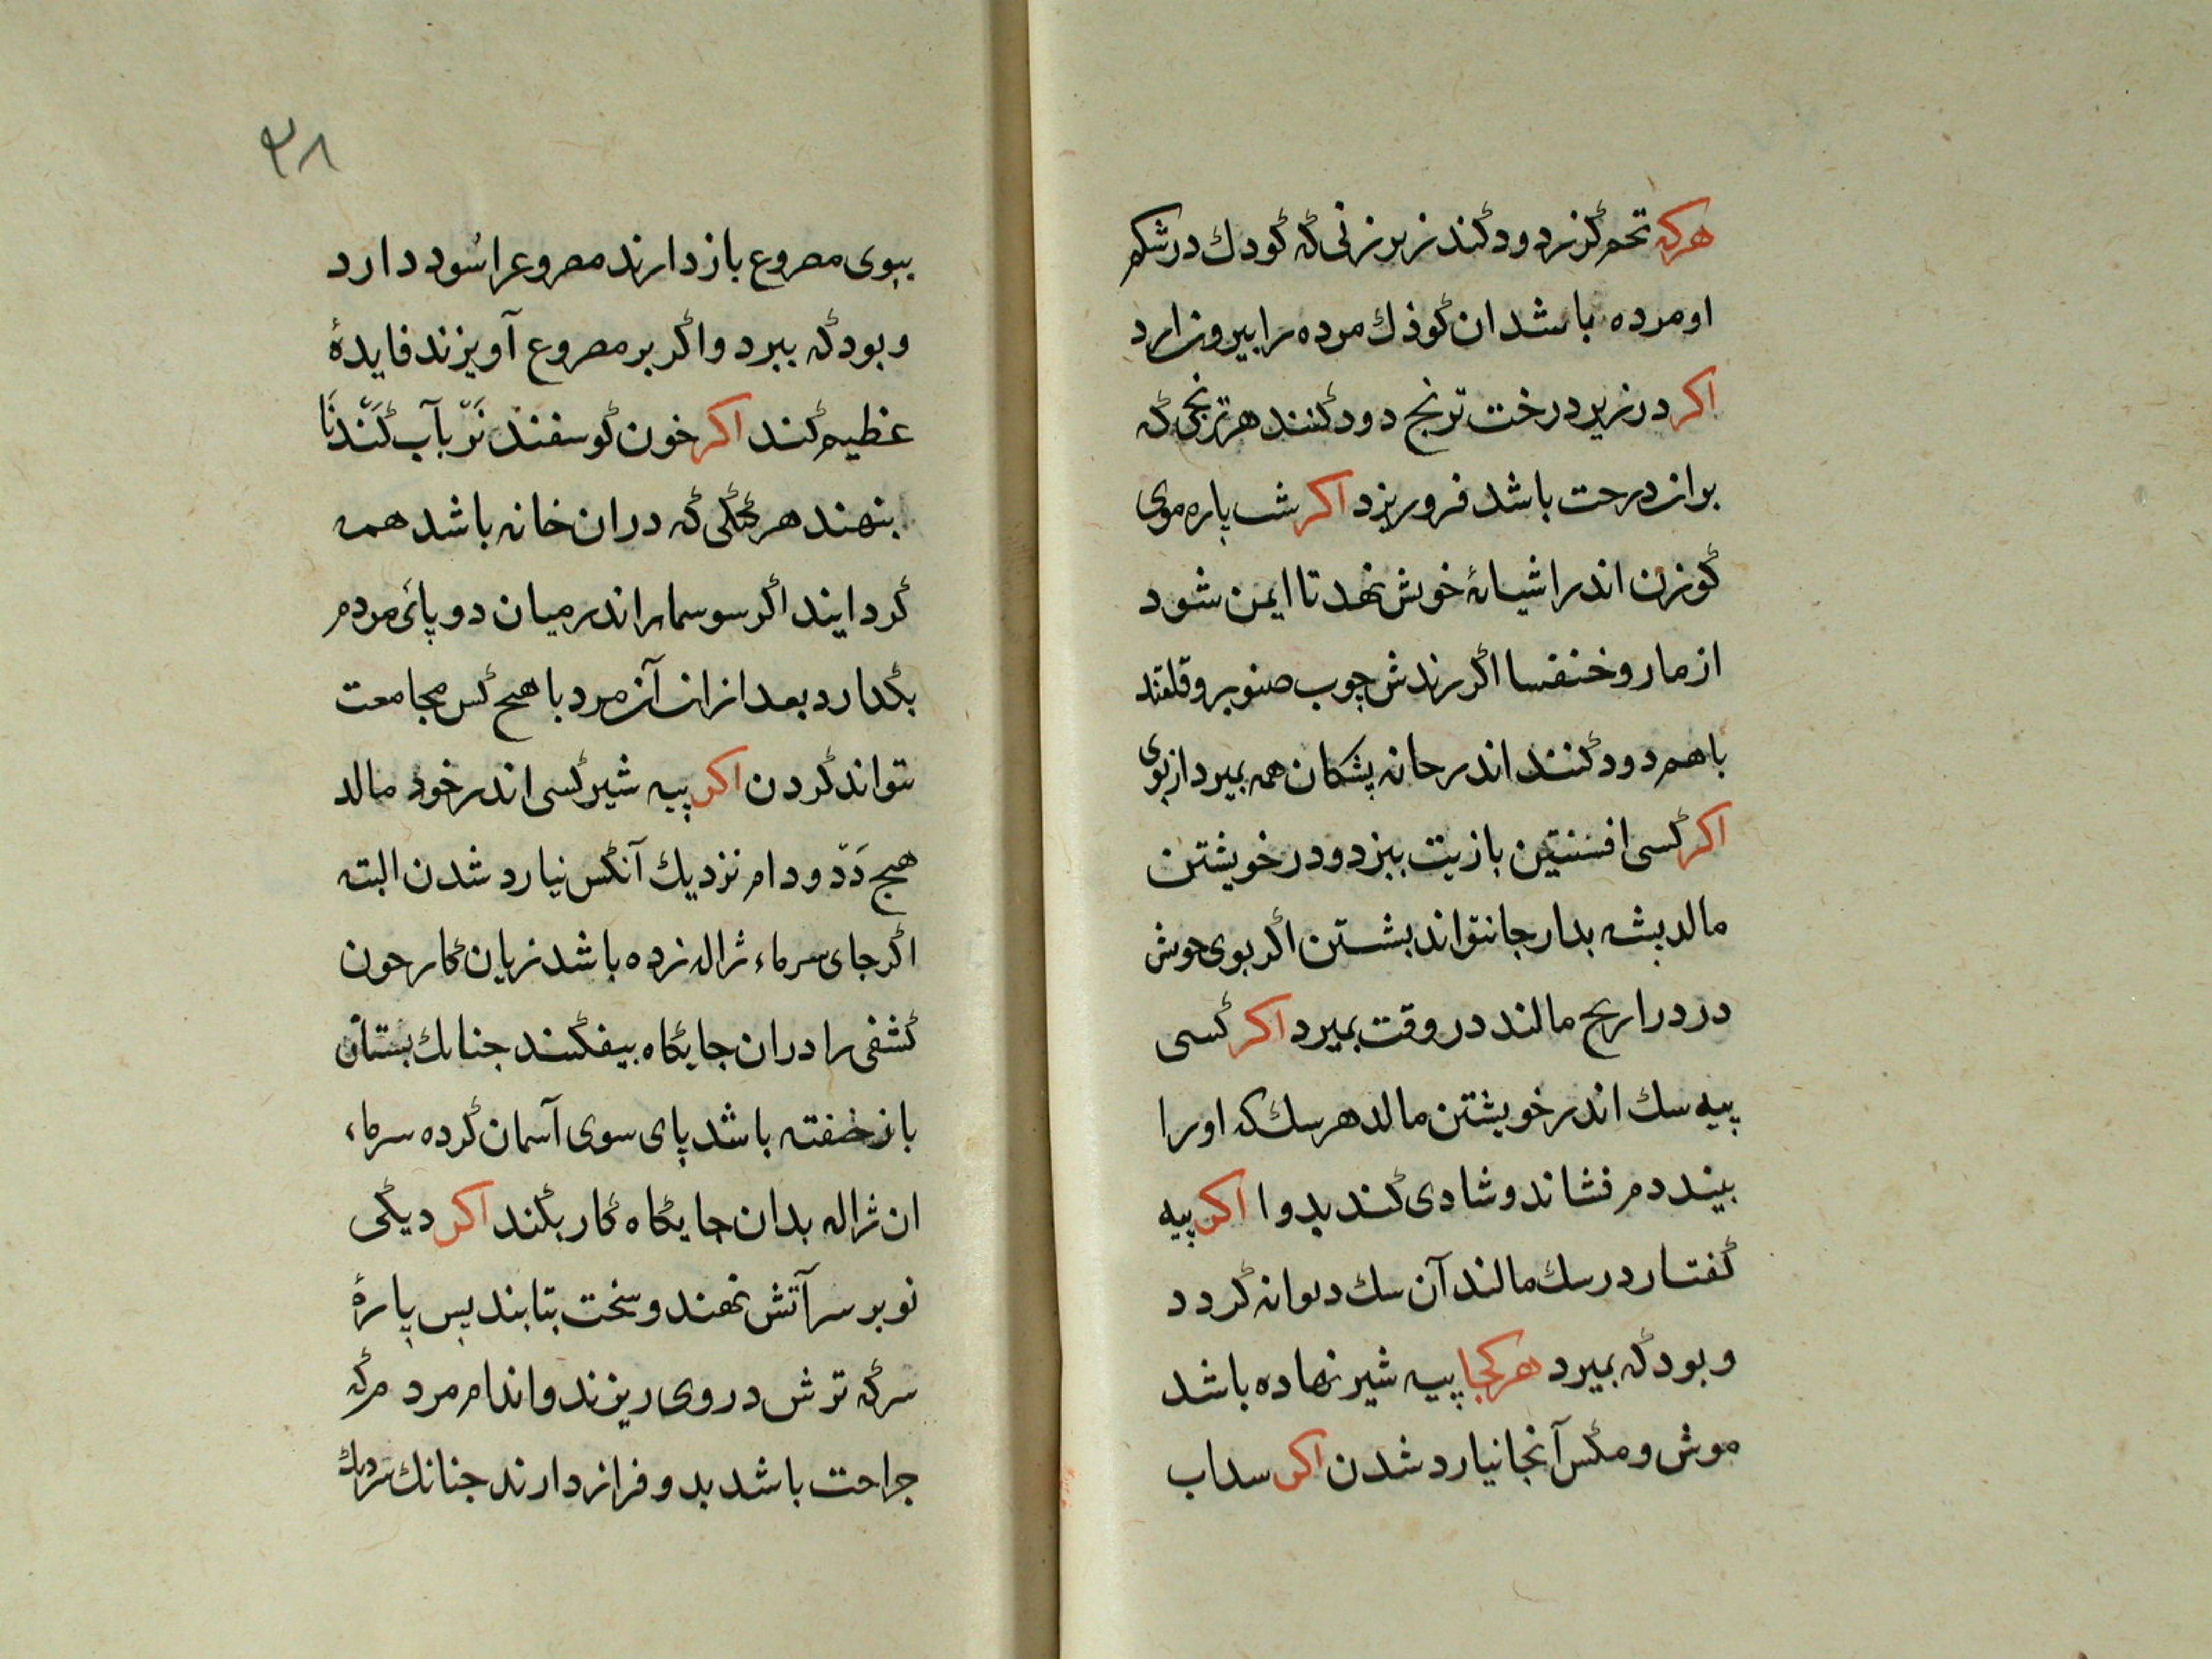 هركه تخم گزر دود كند زير زنى كه كودك در شكم
او مرده باشد ان كوذك مرده را بيرون ارد
اكر در زير درخت ترنج دود كنند هر ترنجى كه
بران درحت باشد فرو ريزد اكر شب پاره موى
كوزن اندر اشيانهٔ خويش نهد تا ايمن شود
از مار و خنفسا اكر رندش چوب صنوبر و قلقند
باهم دود كنند اندر حانه پشكان همه بميرد از بوى
اكر كسى افسنتين بازيت بپزد و در خويشتن
مالد پشه بدار جا نتواند بشستن اكر بوى خوش
در دراريح مالند در وقت بميرد اكر كسى
پيه سك اندر خويشتن مالد هر سك كه او را
بيند دم فشاند و شادى كند بدوا اكر پيه
كفتار در سك مالند آن سك ديوانه كردد
و بود كه بميرد هر كجا پيه شير نهاده باشد
موش و مكس آنجا نيارد شدن اكر سداب
٣٨
ببوى مصروع باز دارند مصروع را سُود دارد
و بود كه ببرد و اكر بر مصروع آويزند فايدهٔ
عظيم كند اكر خون كوسفند نَرّ بآب كَنَدنَا
بنهند هر كيكى كه دران خانه باشد همه
كرد ايند اكر سوسمار اندر ميان دو پائ مردم
بكدارد بعد ازان آن مرد با هيج كس مجامعت
نتواند كردن اكر پيه شير كسى اندر خود مالد
هيج دَدّ و دام نزديك آنكس نيارد شدن البته
اكر جاى سرماء ژاله زده باشد زيان كار حون
كشفى را دران جايكاه بيفكنند جنانك بستان
باز خفته باشد پاى سوى آسمان كرده سرماء
ان ژاله بدان جايكاه كار بكند اكر ديكى
نو بر سر آتش نهند و سخت بتابند پس پارهٔ
سركه ترش در وى ريزند و اندام مرد مركه
جراحت باشد بدو فراز دارند جنانك نزديك